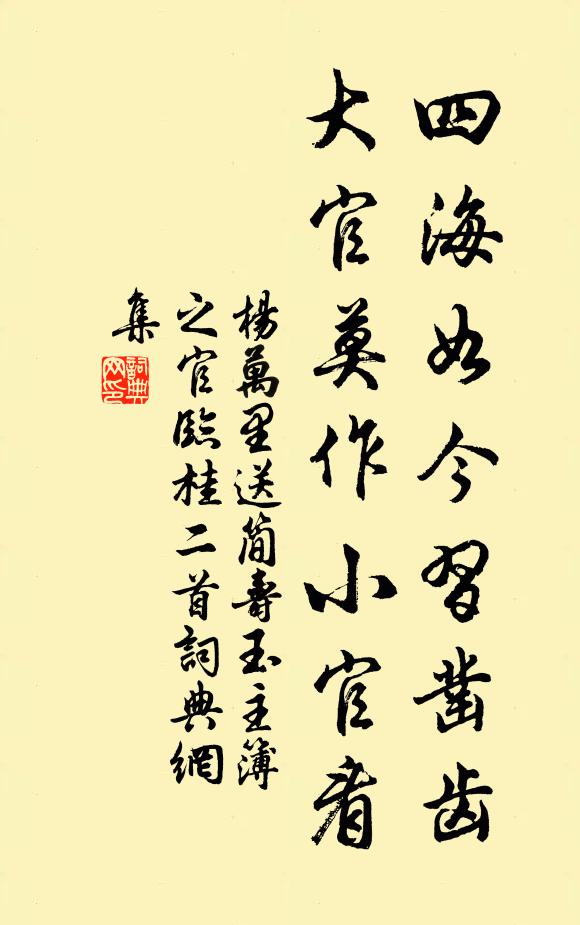 四海如今習凿齿
大官莫作小官看
楊萬里送簡壽玉主簿
之官臨桂二首詞典網
集
詞典
网印